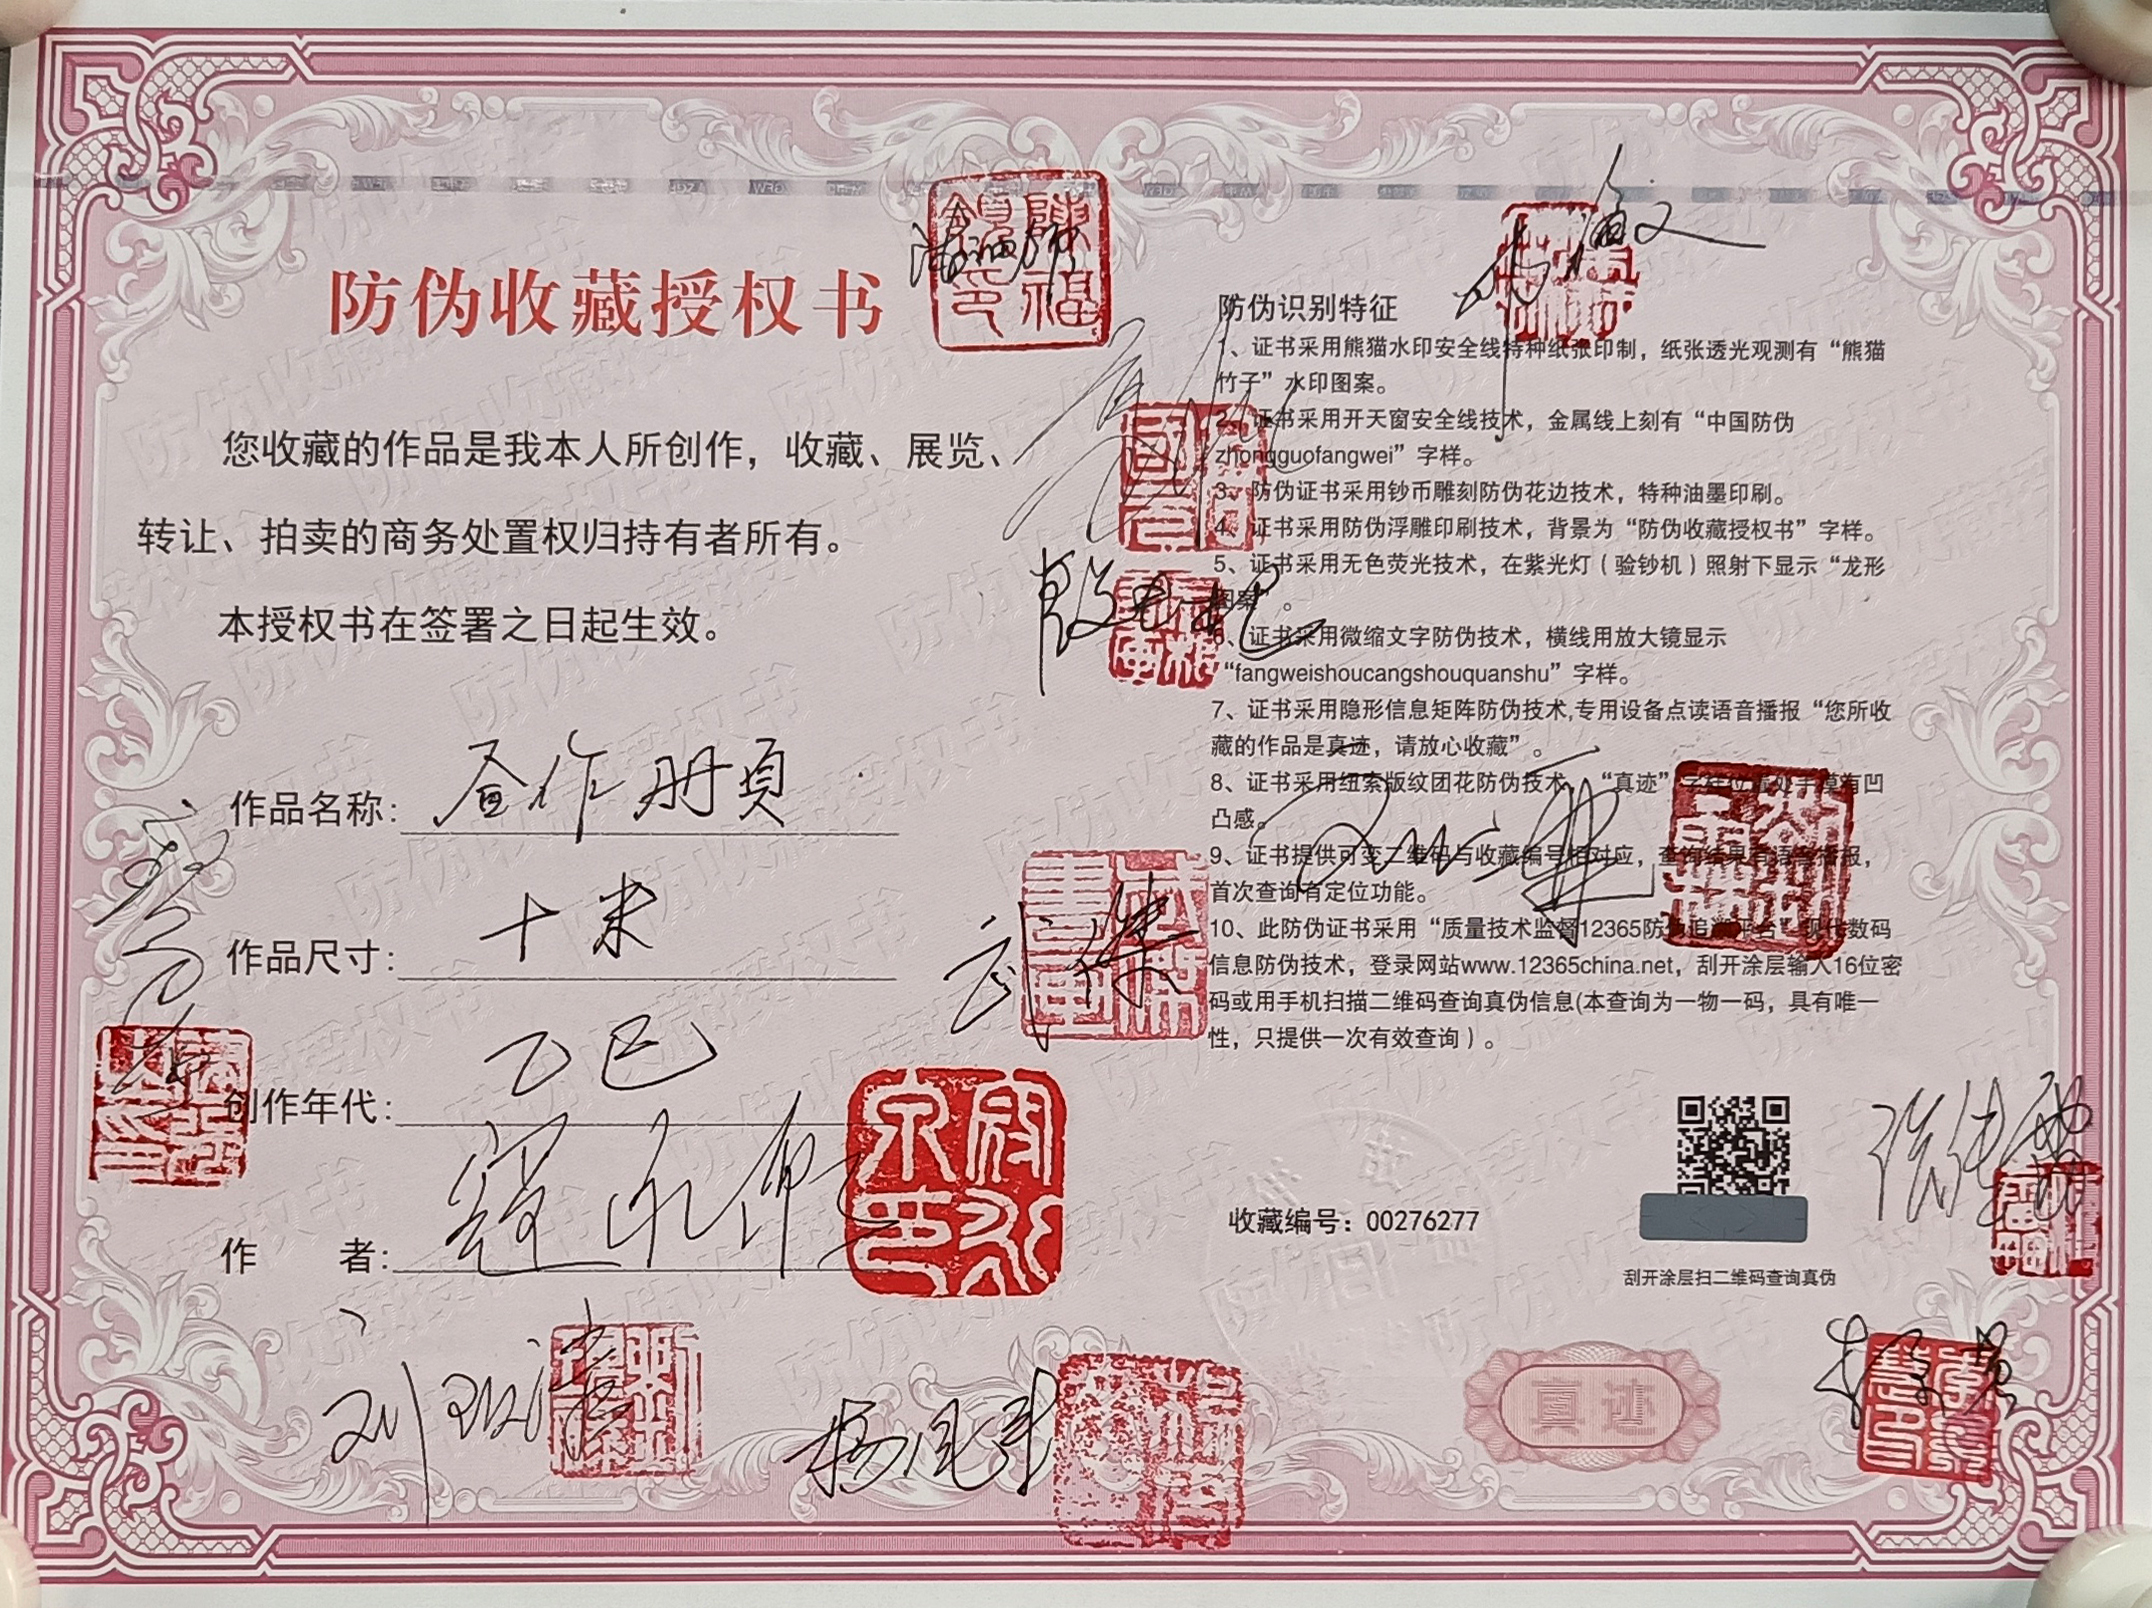 防伪收藏授权书
您收藏的作品是我本人所创作，收藏、展览、
转让、拍卖的商务处置权归持有者所有。
本授权书在签署之日起生效。
作品名称：合作册页
作品尺寸：十米
创作年代：乙巳
作 者：
武杰
杨
防伪识别特征
1、证书采用熊猫水印安全线特种纸张印制，纸张透光观测有“熊猫
竹子”水印图案。
2、证书采用开天窗安全线技术，金属线上刻有“中国防伪
zhongguofangwei”字样。
3、防伪证书采用钞币雕刻防伪花边技术，特种油墨印刷。
4、证书采用防伪浮雕印刷技术，背景为“防伪收藏授权书”字样。
5、证书采用无色荧光技术，在紫光灯（验钞机）照射下显示“龙形
图案”。
6、证书采用微缩文字防伪技术，横线用放大镜显示
“fangweishoucangshouquanshu”字样。
7、证书采用隐形信息矩阵防伪技术,专用设备点读语音播报“您所收
藏的作品是真迹，请放心收藏”。
8、证书采用纽索版纹团花防伪技术，“真迹”字样位置处手摸有凹
凸感。
9、证书提供可变二维码与收藏编号相对应，查询结果有语音播报，
首次查询有定位功能。
10、此防伪证书采用“质量技术监督12365防伪追溯平台”现代数码
信息防伪技术，登录网站www.12365china.net，刮开涂层输入16位密
码或用手机扫描二维码查询真伪信息(本查询为一物一码，具有唯一
性，只提供一次有效查询）。
收藏编号：00276277
刮开涂层扫二维码查询真伪
真迹